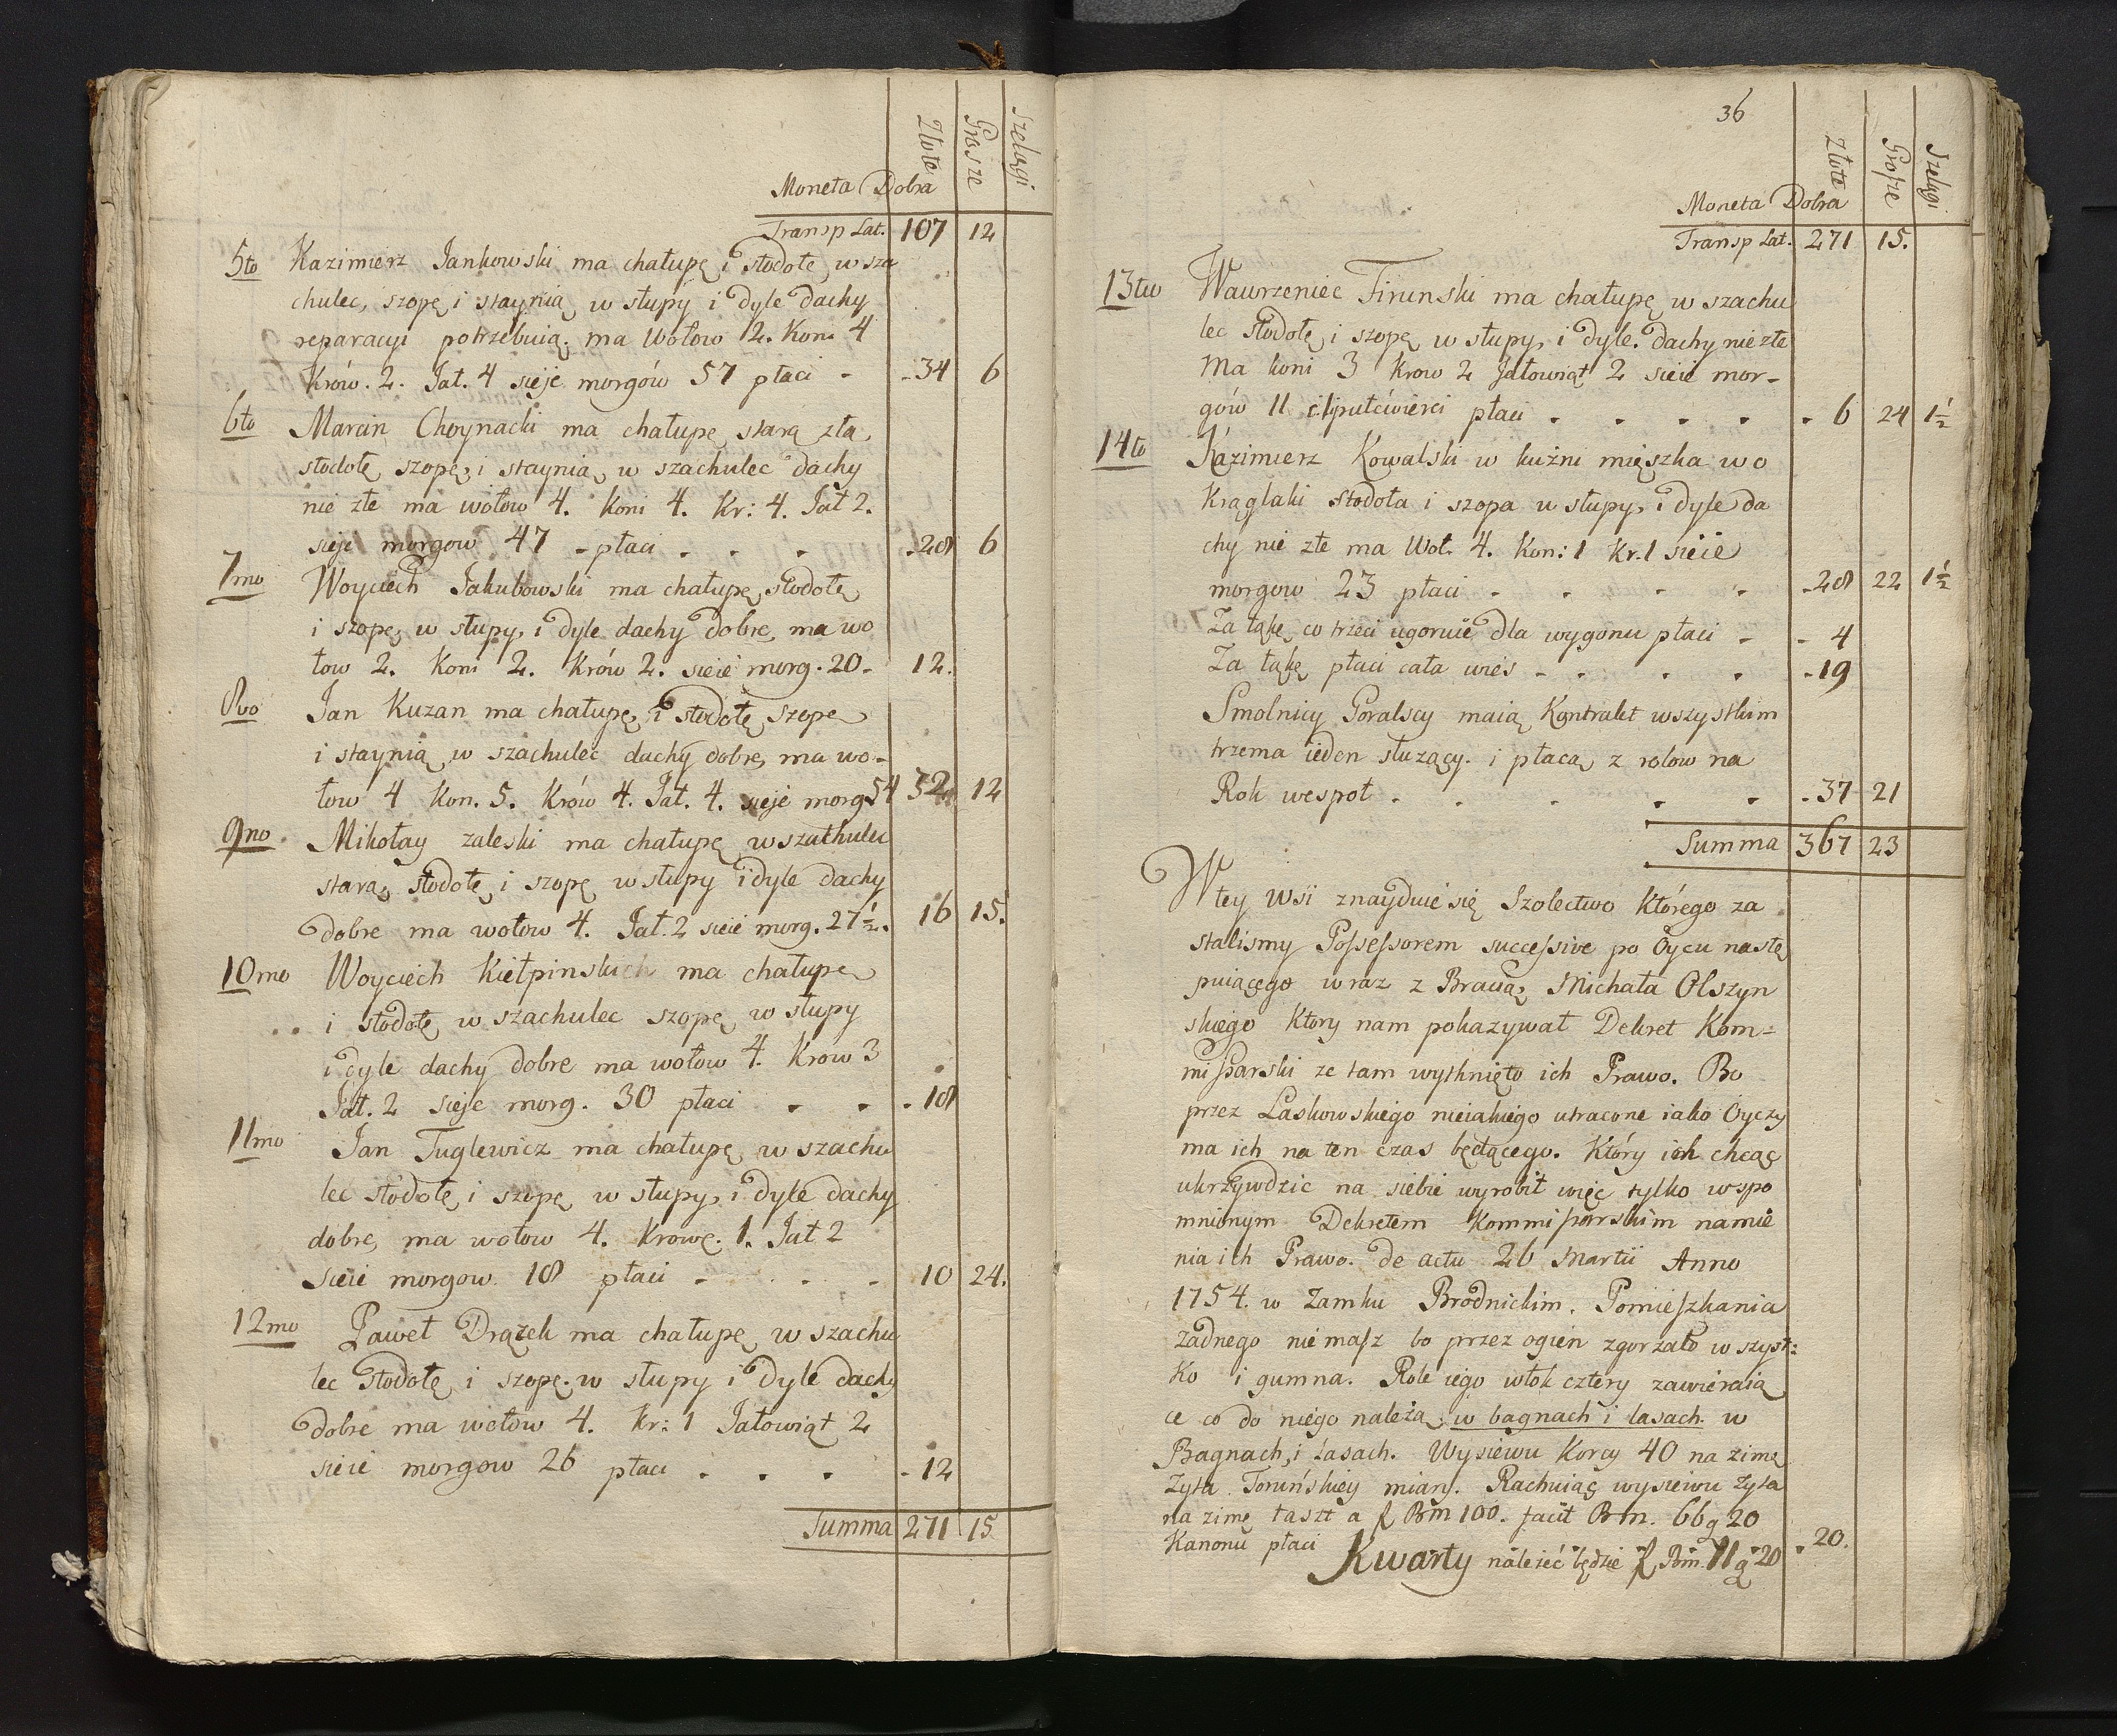 Złote
Grosze
Szelągi
Moneta Dobra
Transp Lat. 107 12
5to Kazimierz Jankowski ma chałupę i stodołę w sza
chulec, szopę i staynią w słupy i dyle dachy
reparacyi potrzebuią. ma Wołow 2. Koni 4
Krów. 2. Jał. 4 sieje morgów 57 płaci - - 34 6
6to Marcin Choynacki ma chałupę starą złą,
stodołę szopę, i staynią w szachulec dachy
nie złe ma wołow 4. Koni 4. Kr: 4. Jał 2.
sieje morgow 47 - płaci . . . - 28 6
7mo Woyciech Jakubowski ma chałupę, stodołę
i szopę w słupy, i dyle dachy dobre, ma wo
łow 2. Koni 2. Krów 2. sieie morg. 20 - 12.
8vo Jan Kuzan ma chałupę, i stodołę szopę
i staynią w szachulec dachy dobre, ma wo-
łow 4 Kon. 5. Krów 4. Jał. 4. sieje morg 54 32 12
9no Mikołay zaleski ma chałupę w szachulec
starą, stodołę i szopę w słupy i dyle dachy
dobre ma wołow 4. Jał. 2 sieie morg. 27 1/2. 16 15.
10mo Woyciech Kiełpinski ma chałupę
i stodołę w szachulec szopę w słupy
i dyle dachy dobre ma wołow 4. Krow 3
Jał. 2 sieje morg. 30 płaci . . - 18
11mo Jan Tuglewicz ma chałupę w szachu
lec stodołę i szopę w słupy, i dyle dachy
dobre, ma wołow 4. Krowę. 1. Jał 2
sieie morgow. 18 płaci - . . - 10 24.
12mo Paweł Drązek ma chałupę w szachu
lec stodołę i szopę. w słupy i dyle dachy
dobre ma wołow 4. kr: 1 Jałowiąt 2
sieie morgow 26 płaci . . . - 12
Summa 271 15
36
Złote
Grosze
Szelągi
Moneta Dobra
Transp Lat. 271 15.
13tio Wawrzeniec Firunski ma chałupę w szachu
lec stodołę i szopę w słupy, i dyle. dachy nie złe
Ma koni 3 Krow 2 Jałowiąt 2 sieie mor-
gów 11 i pułćwierci płaci . . . . . 6 24 1 1/2
14to Kazimierz Kowalski w kuźni mięszka w o
Krąglaki stodoła i szopa w słupy, i dyle da
chy nie złe ma Woł. 4. Kon: 1 Kr. 1 sieie
morgow 23 płaci . . . . - 28 22 1 1/2
Za łąkę, co trzeci ugoruie dla wygonu płaci - - 4
Za łąkę płaci cała wieś - . . . - 19
Smolnicy Goralscy maią Kontrakt wszystkim
trzema ieden służący. i płacą z rolow na
Rok wespoł . . . . . - 37 21
Summa 367 23
W tey wsi znayduie się Szolectwo którego za
stalismy Possessorem successive po Oycu nastę
puiącego wraz z Bracią, Michała Olszyn
skiego Ktory nam pokazywał Dekret Kom=
missarski ze tam wytknięto ich Prawo. Bo
przez Laskowskiego nieiakiego utracone iako Oyczy
ma ich na ten czas będącego. Który ich chcąc
ukrzywdzic na siebie wyrobił więc tylko wspo
mnionym Dekretem Kommissarskim namie
nia ich Prawo. de actu 26 Martii Anno
1754. w Zamku Brodnickim. Pomieszkania
żadnego nie masz bo przez ogien zgorzało wszyst=
ko i gumna. Role iego włok cztery zawieraią
ce co do niego należą, w bagnach i lasach. w
Bagnach, i Lasach. Wysiewu Korcy 40 na zimę
Zyta Toruńskiey miary. Rachuiąc wysiewu zyta
na zimę łaszt a f Bm 100. facit Bm. 66 g 20
Kanonu płaci - 20.
Kwarty należeć będzie f Bm. 11 g 20